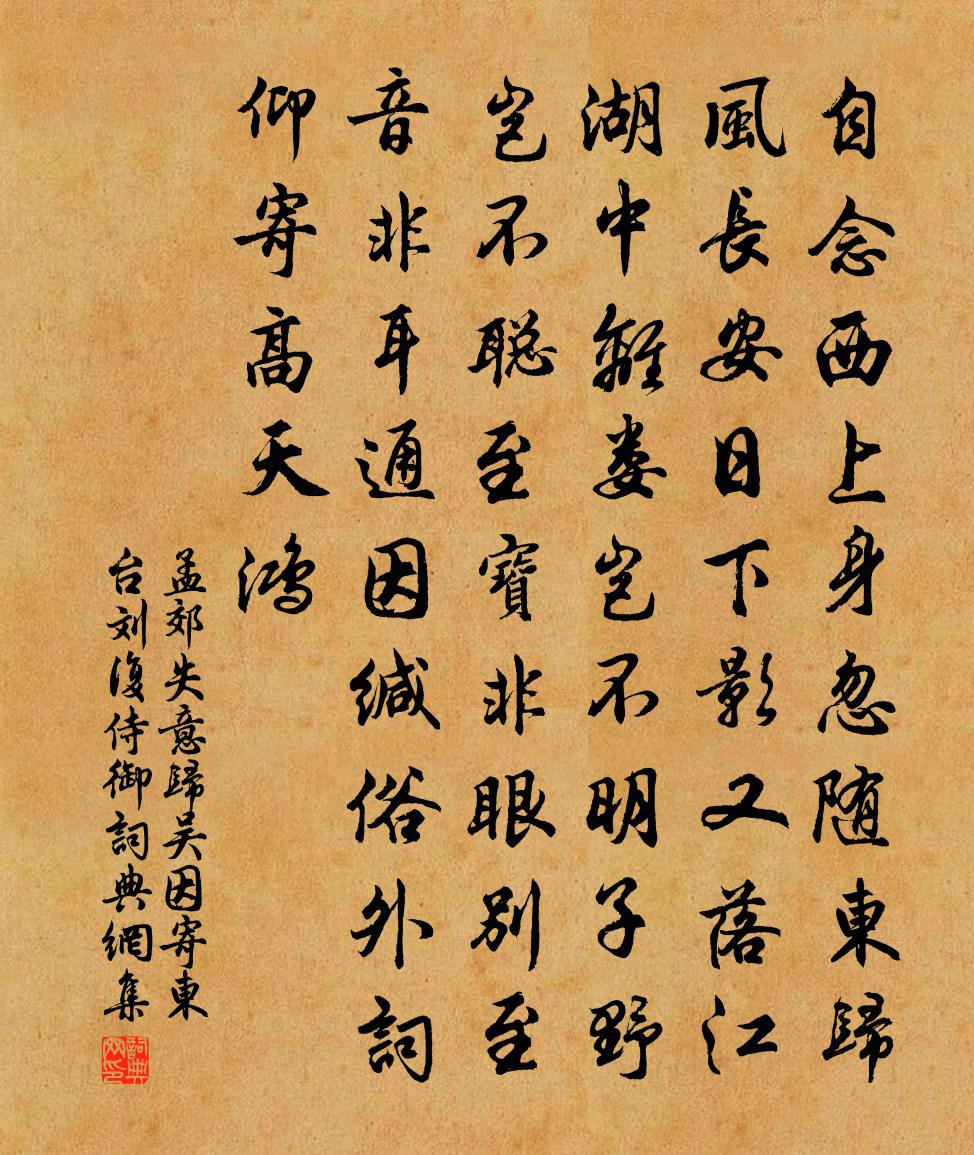 自念西上身忽随東歸
風長安日下影又落江
湖中離娄岂不明子野
岂不聪至寶非眼別至
音非耳通因緘俗外詞
仰寄高天鸿
孟郊失意歸吴因寄東
台刘復侍御詞典網集
詞典网印